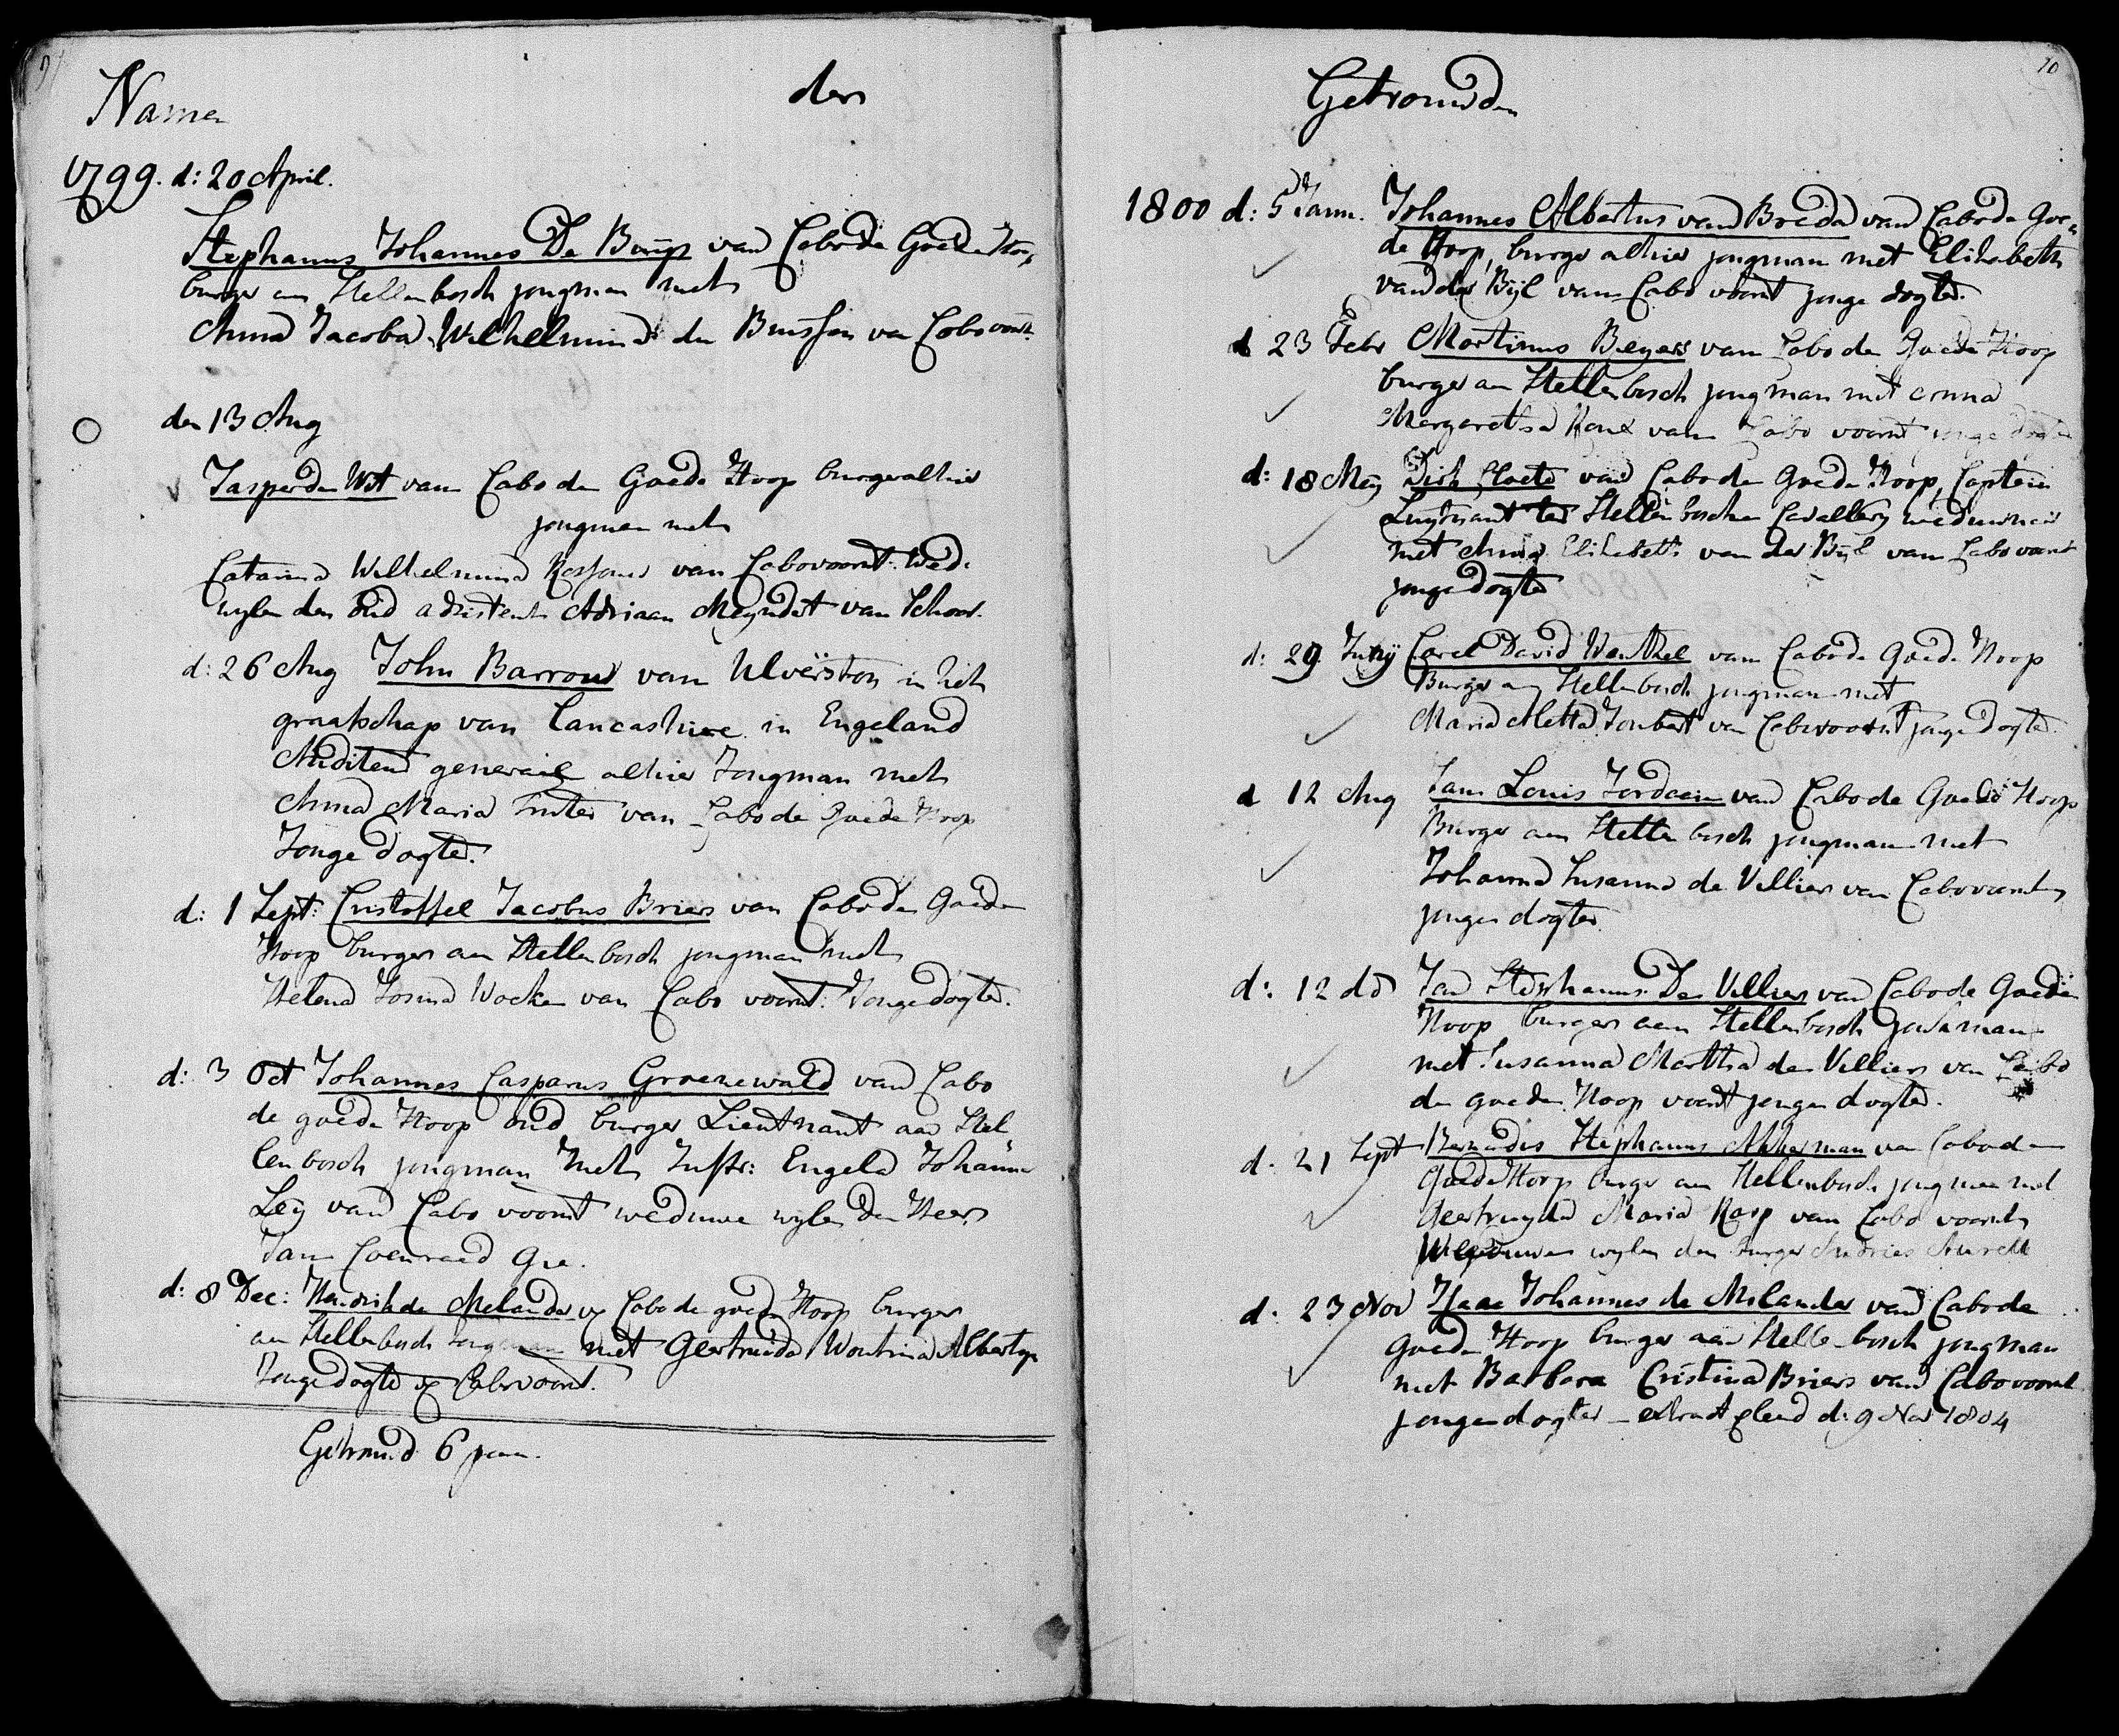 9
Namen der
1799. d: 20 April.
Stephanus Johannes De Buijs van Cabo de Goede Hoop
burger aan Stellenbosch jongman met
Anna Jacoba Wilhelmina de Bussen van Cabo voornt:
den 13 Aug
Jasper de Wit van Cabo de Goede Hoop burger alhier
jongman met
Catarina Wilhelmina van Cabo voornt: Wed:
wylen den oud adsistent Adriaan Meyndert van Schoor.
d: 26 Aug John Barrow van Ulverston in het
graafschap van Lancashire in Engeland
Auditeur generaal alhier Jongman met
Anna Maria Truter van Cabo de Goede Hoop
Jonge dogter.
d: 1 Sept: Cristoffel Jacobus Briers van Cabo de Goede
Hoop burger aan Stellenbosch jongman met
Helena Josina Wocke van Cabo voornt: Jonge dogter.
d: 3 Oct Johannes Casparus Groenewald van Cabo
de goede Hoop oud burger Lieutnant aan Stel
lenbosch jongman met Juffr: Engela Johanna
Leij van Cabo voornt weduwe wylen den Heer
Jan Coenraad Gie.
d: 8 Dec: Hendrik de Melander v Cabo de goede Hoop burger
aan Stellenbosch jongman met Geertruida Woutrina Albertyn
Jonge dogter v Cabo voornt.
Getrouwd 6 paar.
10
Getrouwden
1800 d: 5 Janu. Johannes Albertus van Breda van Cabo de Goe
de Hoop, burger alhier jongman met Elizabeth
van der Bijl van Cabo voornt jonge dogter.
d 23 Febr Martinus Beyers van Cabo de Goede Hoop
burger aan Stellenbosch jongman met Anna
Margaretha Roux van Cabo voornt jonge dogter
d: 18 Meij Dirk Cloete van Cabo de Goede Hoop, Captein
Luytnant ter Stellenbosche Cavallery weduwnaar
met Anna Elizabeth van der Bijl van Cabo voornt
jonge dogter
d: 29 Junij Carel David Wentzel van Cabo de Goede Hoop
Burger aan Stellenbosch jongman met
Maria Aletta Joubert van Cabo voornt jonge dogter.
d 12 Aug Jan Louis Jordaan van Cabo de Goede Hoop
Burger aan Stellenbosch jongman met
Johanna Susanna de Villiers van Cabo voornt
jonge dogter.
d: 12 do Jan Stephanus De Villiers van Cabo de Goede
Hoop burger aan Stellenbosch jongman
met Susanna Martha de Villiers van Cabo
de goede Hoop voornt jonge dogter.
d. 21 Sept Bernardus Stephanus Akkerman van Cabo de
Goede Hoop burger aan Stellenbosch jongman met
Geertruyda Maria Rasp van Cabo voornt
Weduwe wylen den burger Andries Auret
d. 23 Nov Isaac Johannes de Melander van Cabo de
goede Hoop burger aan Stellenbosch jongman
met Barbara Cristina Briers van Cabo voornt
jonge dogter – extract gleend d: 9 Nov 1804